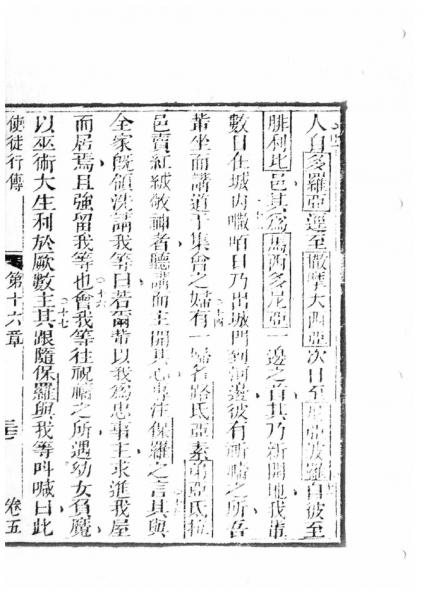 人自多羅亞逕至撒摩大西亞次日至亞波羅自彼至
腓利比邑其為馬西多尼亞一邊之首其乃新開地我等
數日在城內嚈咟日乃出城門到河邊彼有祈禱之所吾
軰坐而講道于集會之婦有一婦名路氏亞素弟亞氏拉
邑賣紅絨敬神者聽講而主開其心專注保羅之言其與
全家既領洗請我等曰若爾軰以我為忠事主求進我屋
而居焉且強留我等也會我等往祝禱之所遇幼女負魔
以巫術大生利於厥數主其跟隨保羅與我等呌喊曰此
使徒行傳 第十六章 卷五
十四
十六
十七